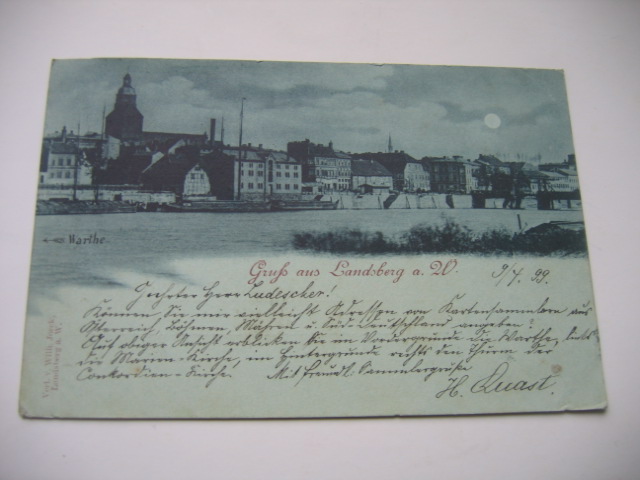 Warthe
Gruß aus Landsberg a. W.
9/7. 99.
Geehrter Herr Ludescher!
Können Sie mir vielleicht Adressen von Kartensammlern aus
Österreich, Böhmen, Mähren u. Süd-Deutschland angeben?
Aus obiger Ansicht erblicken Sie im Vordergrunde die Warthe, links
die Marien-Kirche, im Hintergrunde rechts den Thurm der
Concordien-Kirche. Mit freundl. Sammlergruße
H. Quast.
Landsberg a. W.